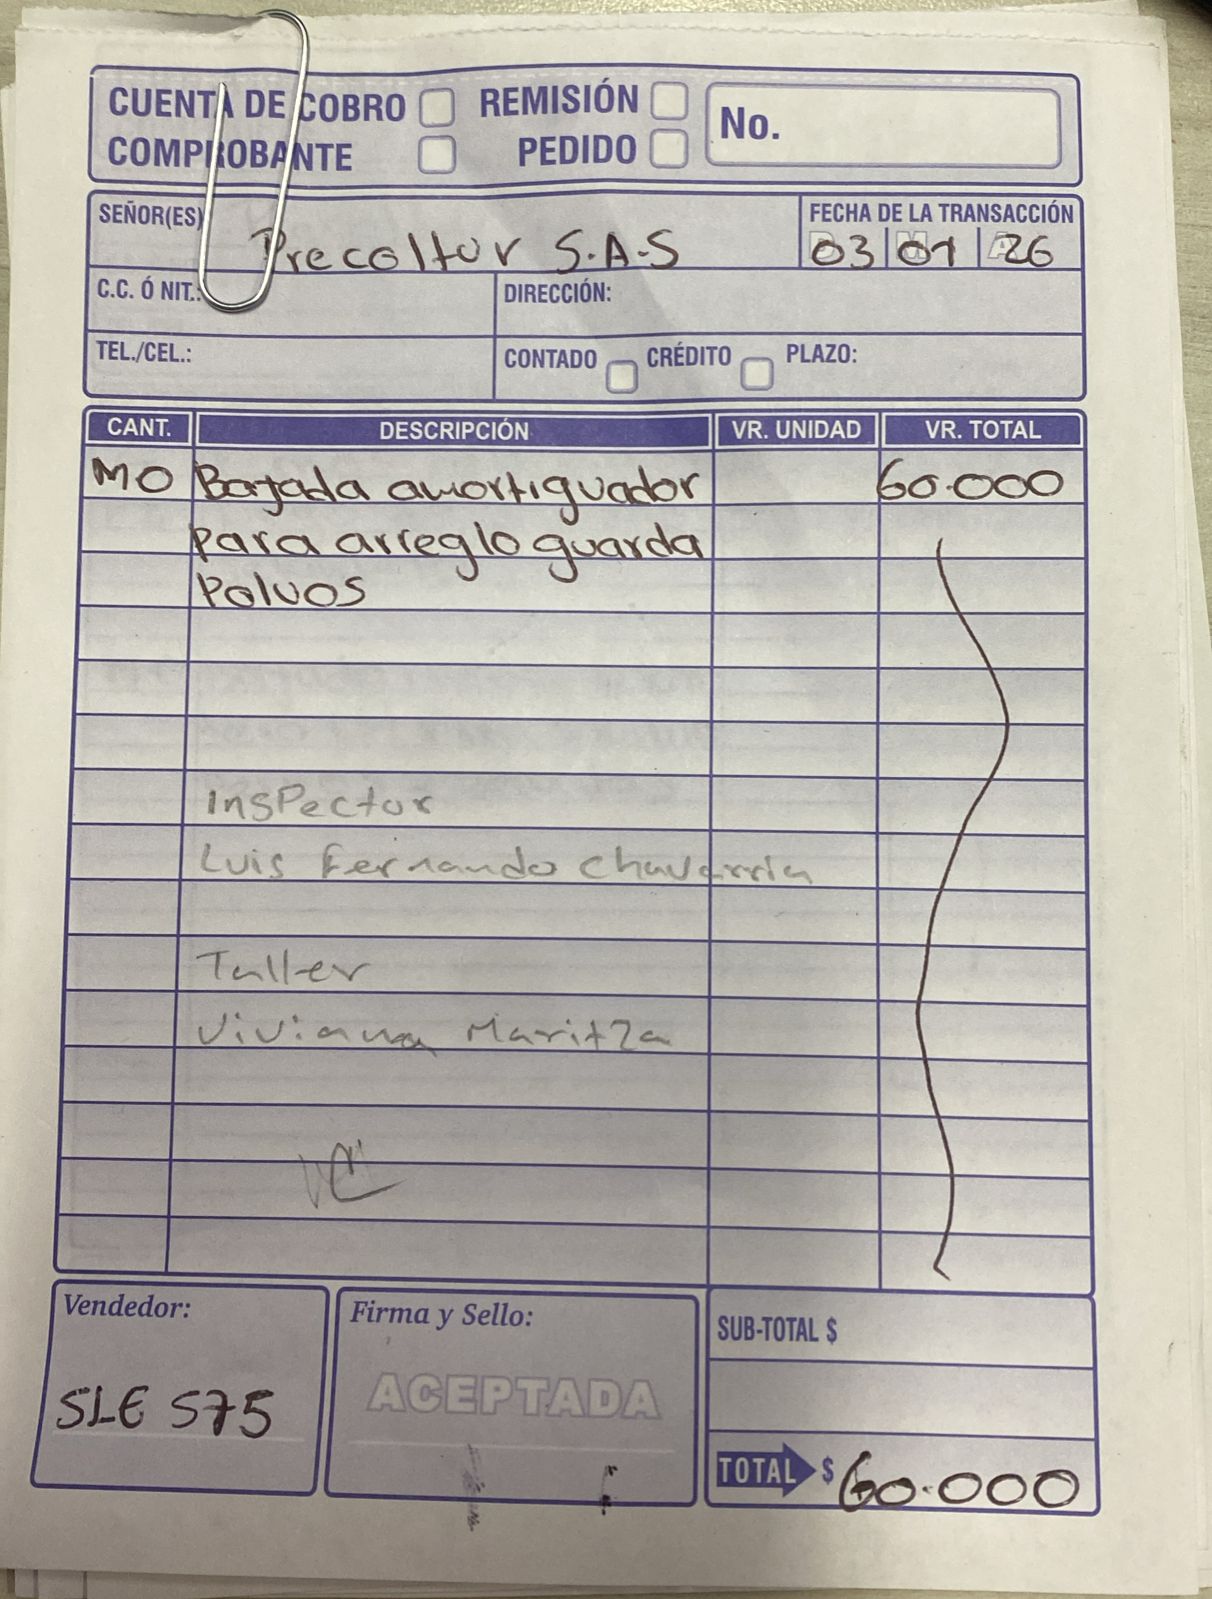 CUENTA DE COBRO
REMISIÓN
COMPROBANTE
PEDIDO
No.
SEÑOR(ES)
Precoltur S.A.S
FECHA DE LA TRANSACCIÓN
03 01 26
C.C. Ó NIT.:
DIRECCIÓN:
TEL./CEL.:
CONTADO
CRÉDITO
PLAZO:
CANT. DESCRIPCIÓN VR. UNIDAD VR. TOTAL
MO Bajada amortiguador 60.000
para arreglo guarda
Polvos
Inspector
Luis Fernando Chavarria
Taller
Viviana Maritza
Vendedor:
SLE 575
Firma y Sello:
ACEPTADA
SUB-TOTAL $
TOTAL $ 60.000